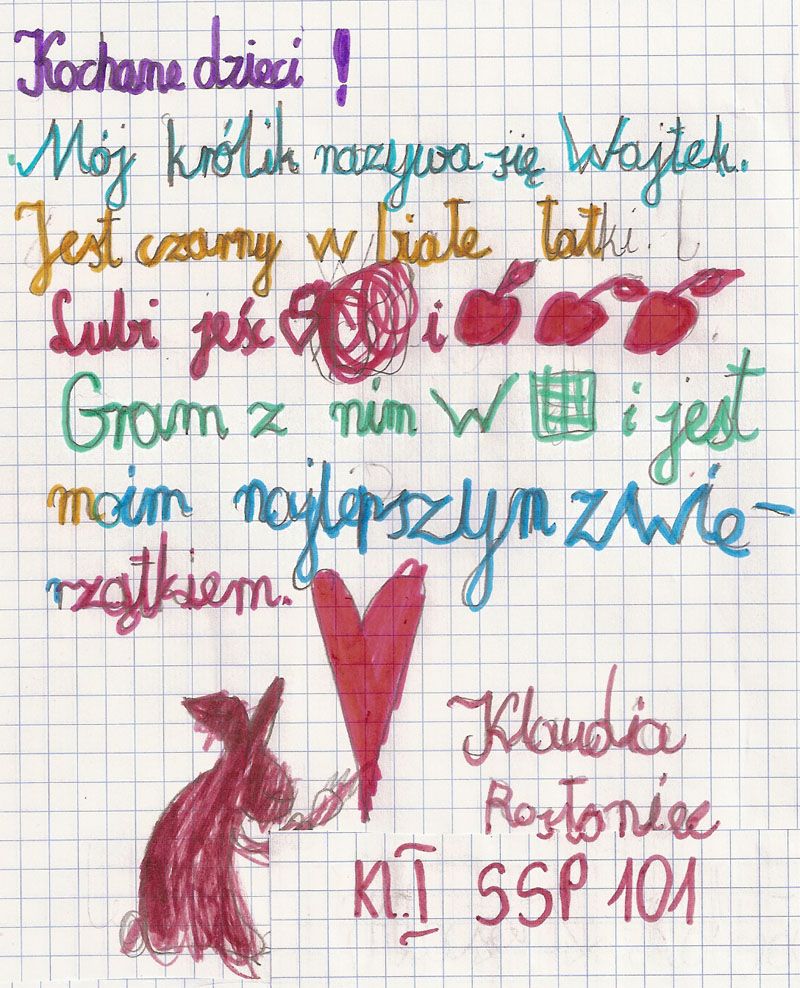 Kochane dzieci!
Mój królik nazywa się Wojtek.
Jest czarny w białe łatki.
Lubi jeść i
Gram z nim w i jest
moim najlepszym zwię-
rzątkiem.
Klaudia
Rosłoniec
Kl. I SSP 101